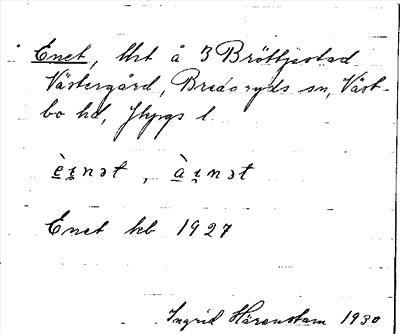 Enet, lht å 3 Bröttjestad
Västergård, Bredaryds sn, Väst-
bo hd, Jkpgs l
è̱ɪ̯nət, à̱ɪ̯nət
Enet kb 1927
Ingrid Härenstam 1930